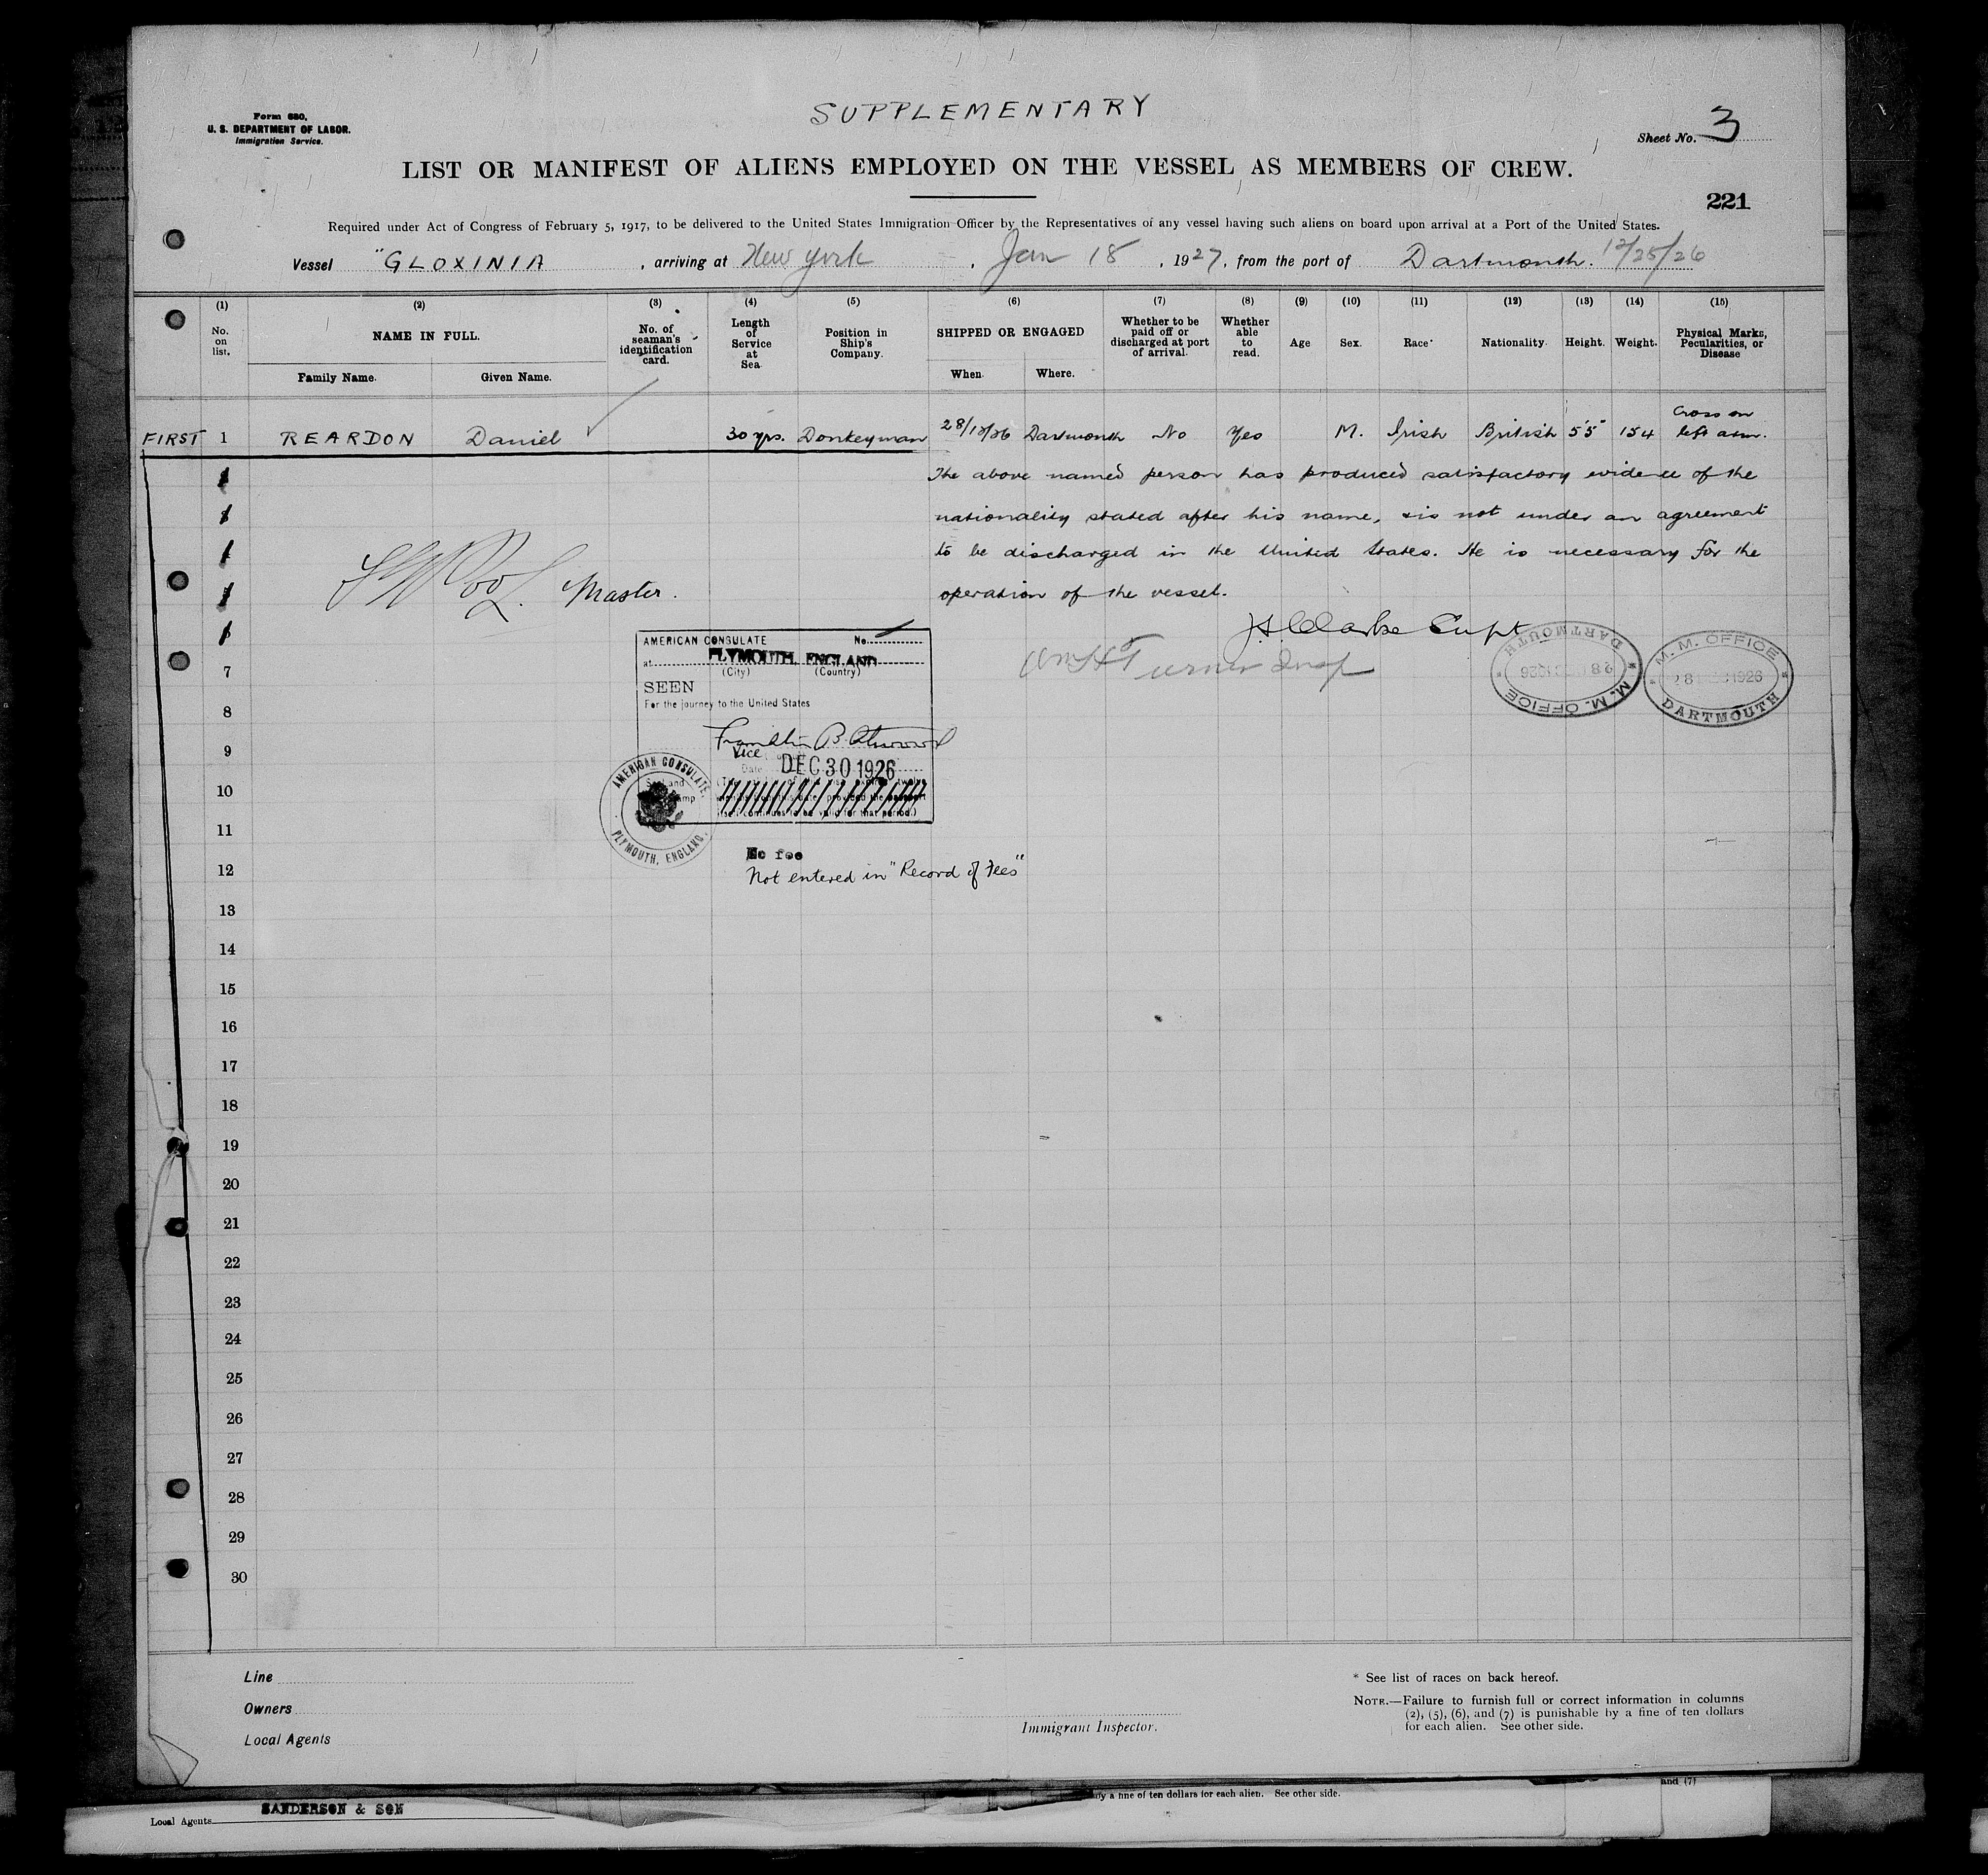 SUPPLEMENTARY
Form 680,
U. S. DEPARTMENT OF LABOR.
Immigration Service.
Sheet No. 3
LIST OR MANIFEST OF ALIENS EMPLOYED ON THE VESSEL AS MEMBERS OF CREW.
221
Required under Act of Congress of February 5, 1917, to be delivered to the United States Immigration Officer by the Representatives of any vessel having such aliens on board upon arrival at a Port of the United States.
Vessel "GLOXINIA , arriving at New York , Jan 18 , 1927, from the port of Dartmouth. 12/28/26
(1) (2) (3) (4) (5) (6) (7) (8) (9) (10) (11) (12) (13) (14) (15)
No. on list.
NAME IN FULL.
Family Name. Given Name.
No. of seaman's identification card.
Length of Service at Sea
Position in Ship's Company.
SHIPPED OR ENGAGED
When. Where.
Whether to be paid off or discharged at port of arrival.
Whether able to read.
Age
Sex.
Race*
Nationality.
Height.
Weight.
Physical Marks, Pecularities, or Disease
FIRST 1 REARDON Daniel 30 yrs. Donkeyman 28/12/26 Dartmouth No Yes M. Irish British 5'5" 154 Cross on left arm.
The above named person has produced satisfactory evidence of the
nationality stated after his name, & is not under an agreement
to be discharged in the United States. He is necessary for the
operation of the vessel.
Master.
J H Clarke Supt
Wm H Turner Insp
M. M. OFFICE
DARTMOUTH
M. M. OFFICE
28 DEC 1926
DARTMOUTH
AMERICAN CONSULATE No.
at PLYMOUTH, ENGLAND
(City) (Country)
SEEN
For the journey to the United States
Vice
Date DEC 30 1926
AMERICAN CONSULATE.
PLYMOUTH, ENGLAND.
No fee
Not entered in "Record of Fees"
7
8
9
10
11
12
13
14
15
16
17
18
19
20
21
22
23
24
25
26
27
28
29
30
Line
Owners
Local Agents
Immigrant Inspector.
* See list of races on back hereof.
NOTE.—Failure to furnish full or correct information in columns
(2), (5), (6), and (7) is punishable by a fine of ten dollars
for each alien. See other side.
and (7)
by a fine of ten dollars for each alien. See other side.
Local Agents SANDERSON & SON